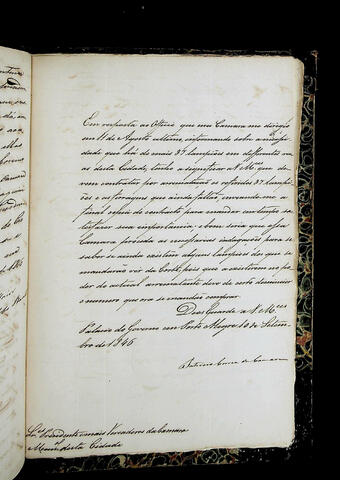 Em resposta ao Officio que essa Camara me dirigio
em 11 de Agosto ultimo, informando sobre a necessi
dade que há de mais 37 lampiões em differentes ru
as desta Cidade, tenho a significar a V. Mces que de
vem contratar por arrematação os referidos 37 lampi
ões e as ferragens que ainda faltão, enviando-me a
final copia do contracto para mandar em tempo sa
tisfazer sua importancia; e bom seria que essa
Camara proceda as necessarias indagações para se
saber se ainda existem alguns lampiões dos que se
mandarão vir da Corte, pois que a existirem no po
der do actual arrematante deve de certo diminuir
o numero que ora se mandão comprar.
Deos Guarde a V. Mces
Palacio do Governo em Porto Alegre 10 de Setem
bro de 1846
Patricio Correa da Camara
Snres Presidente e mais Vereadores da Camara
Munal desta Cidade